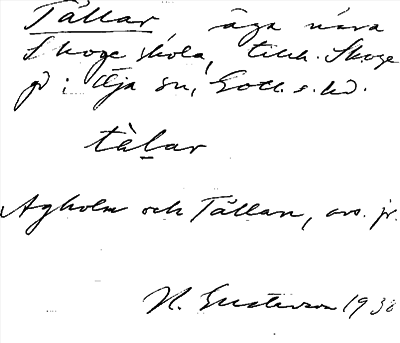 Tållar äga nära
Skoge skola, tillh. Skoge
gd i Öja sn, Gotl. s. hd.
tålar
Agholm och Tållan, avs. jr.
H. Gustavson 1938